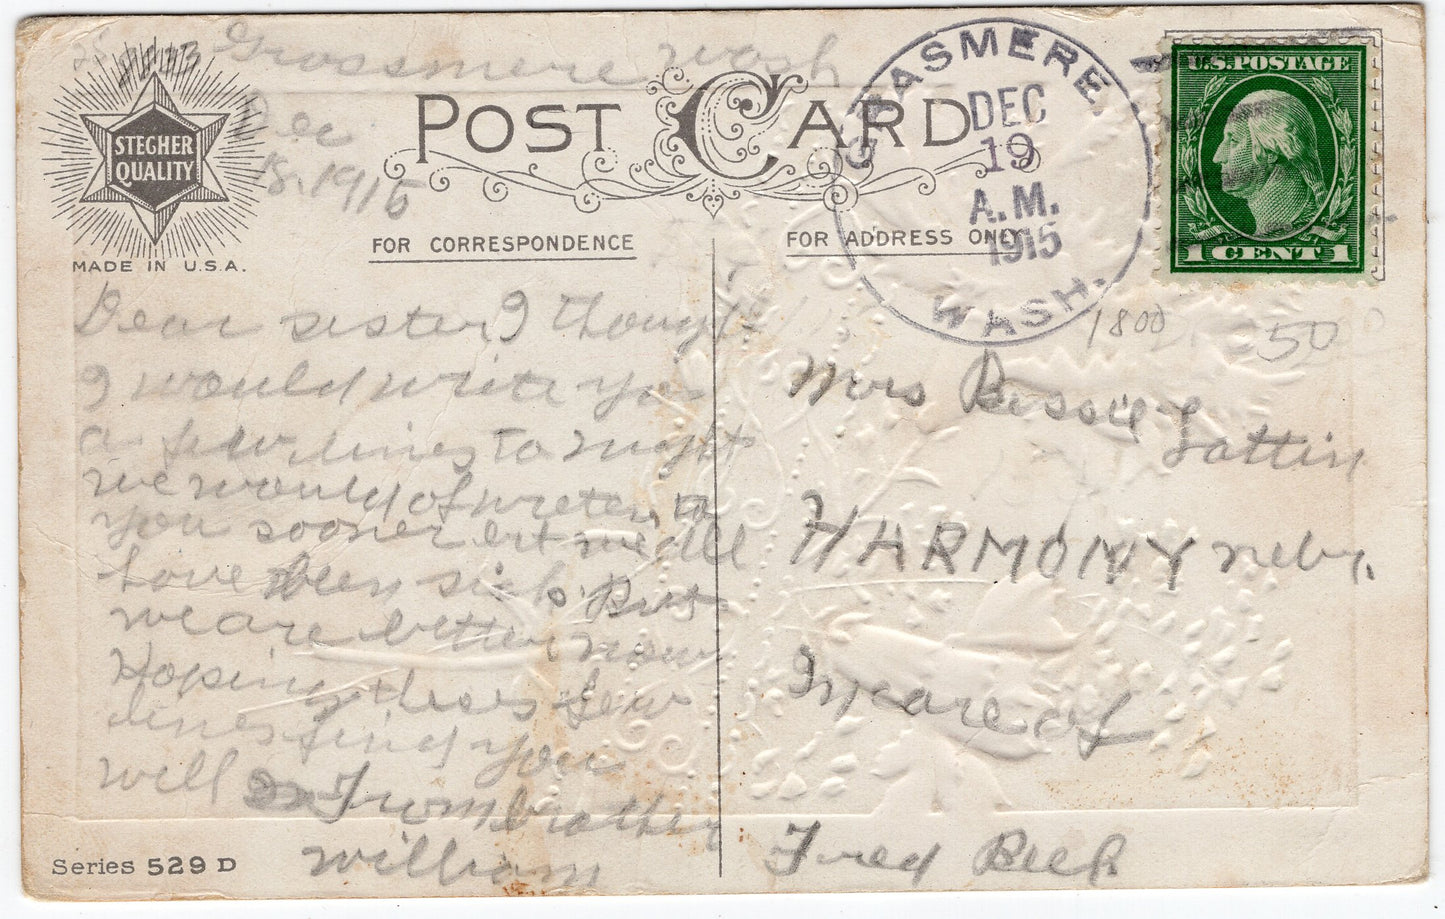 Grossmere Wash
Dec
18. 1915
STEGHER
QUALITY
MADE IN U.S.A.
POST CARD
FOR CORRESPONDENCE
FOR ADDRESS ONLY
GRASMERE
DEC
19
A.M.
1915
WASH.
U.S. POSTAGE
1 CENT 1
1800
50
Dear sister I thought
I would write you
a few lines to night
we would of writen to
you sooner but we all
have been sick. But
we are better now
Hoping thees few
lines find you
will
From brother
William
Mrs Bessie
Lattin
HARMONY Nebr.
In care of
Fred Beck
Series 529 D